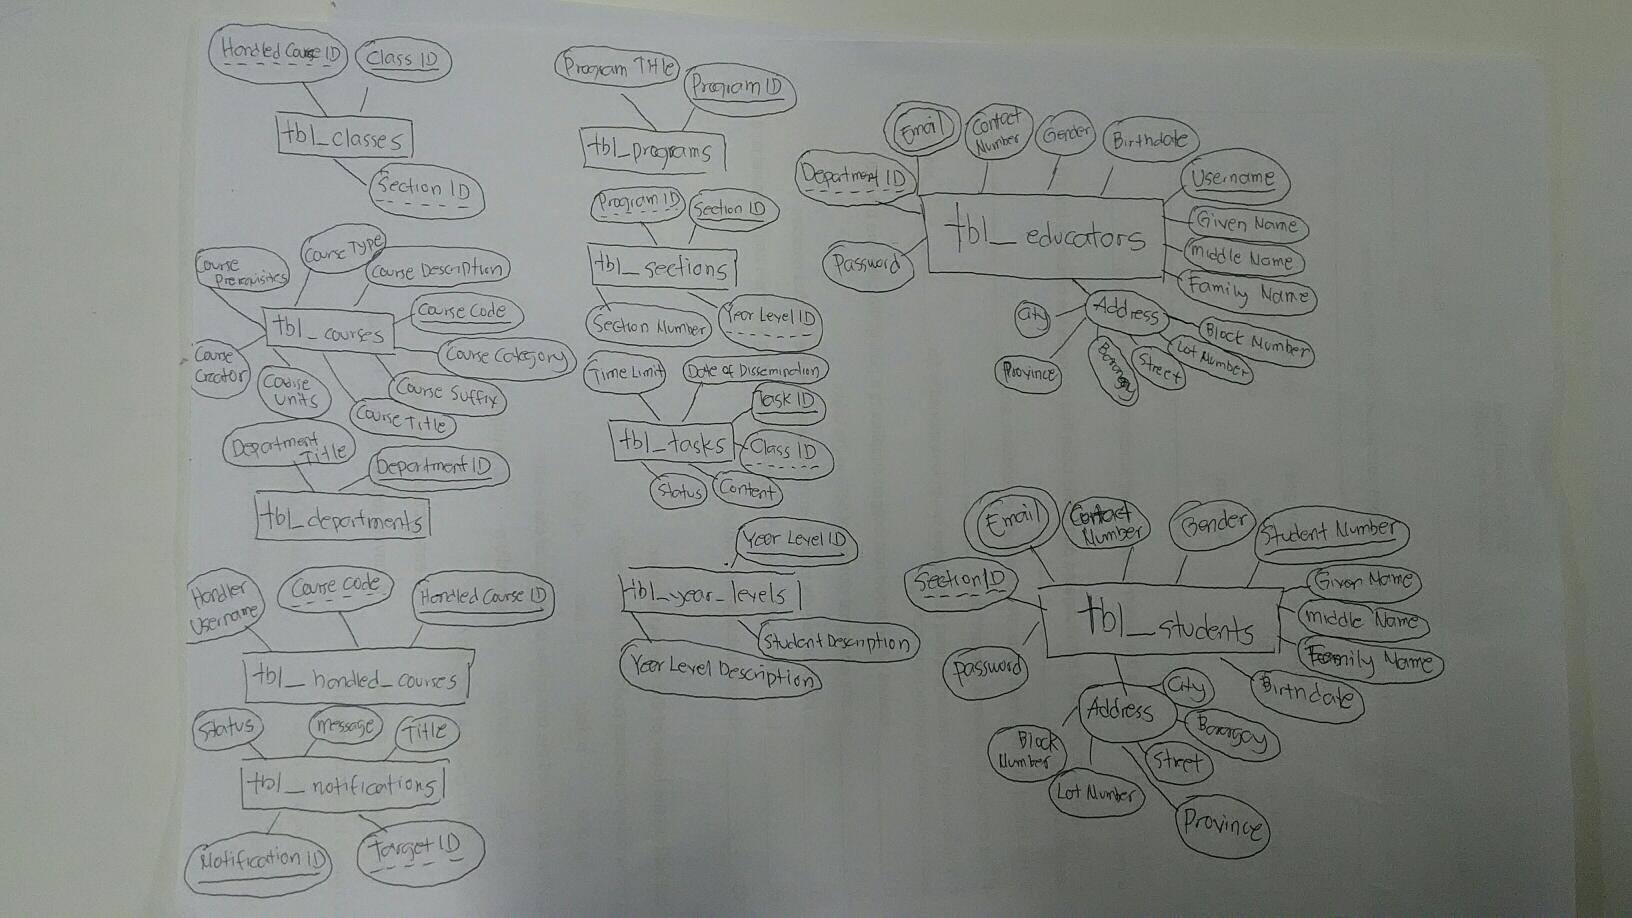 Handled Course ID
Class ID
tbl_classes
Section ID
Course
Prerequisites
Course Type
Course Description
Course Code
tbl_courses
Course Category
Course
Creator
Course
Units
Course Suffix
Course Title
Department
Title
Department ID
tbl_departments
Handler
Username
Course Code
Handled Course ID
tbl_handled_courses
Status
Message
Title
tbl_notifications
Notification ID
Target ID
Program Title
Program ID
tbl_programs
Program ID
Section ID
tbl_sections
Section Number
Year Level ID
Time Limit
Date of Dissemination
Task ID
tbl_tasks
Class ID
Status
Content
Year Level ID
tbl_year_levels
Student Description
Year Level Description
Email
Contact
Number
Gender
Birthdate
Department ID
Username
tbl_educators
Given Name
Middle Name
Password
Family Name
City
Address
Block Number
Lot Number
Street
Province
Email
Contact
Number
Gender
Student Number
Section ID
Given Name
tbl_students
Middle Name
Family Name
Password
Birthdate
City
Address
Block
Number
Street
Lot Number
Province